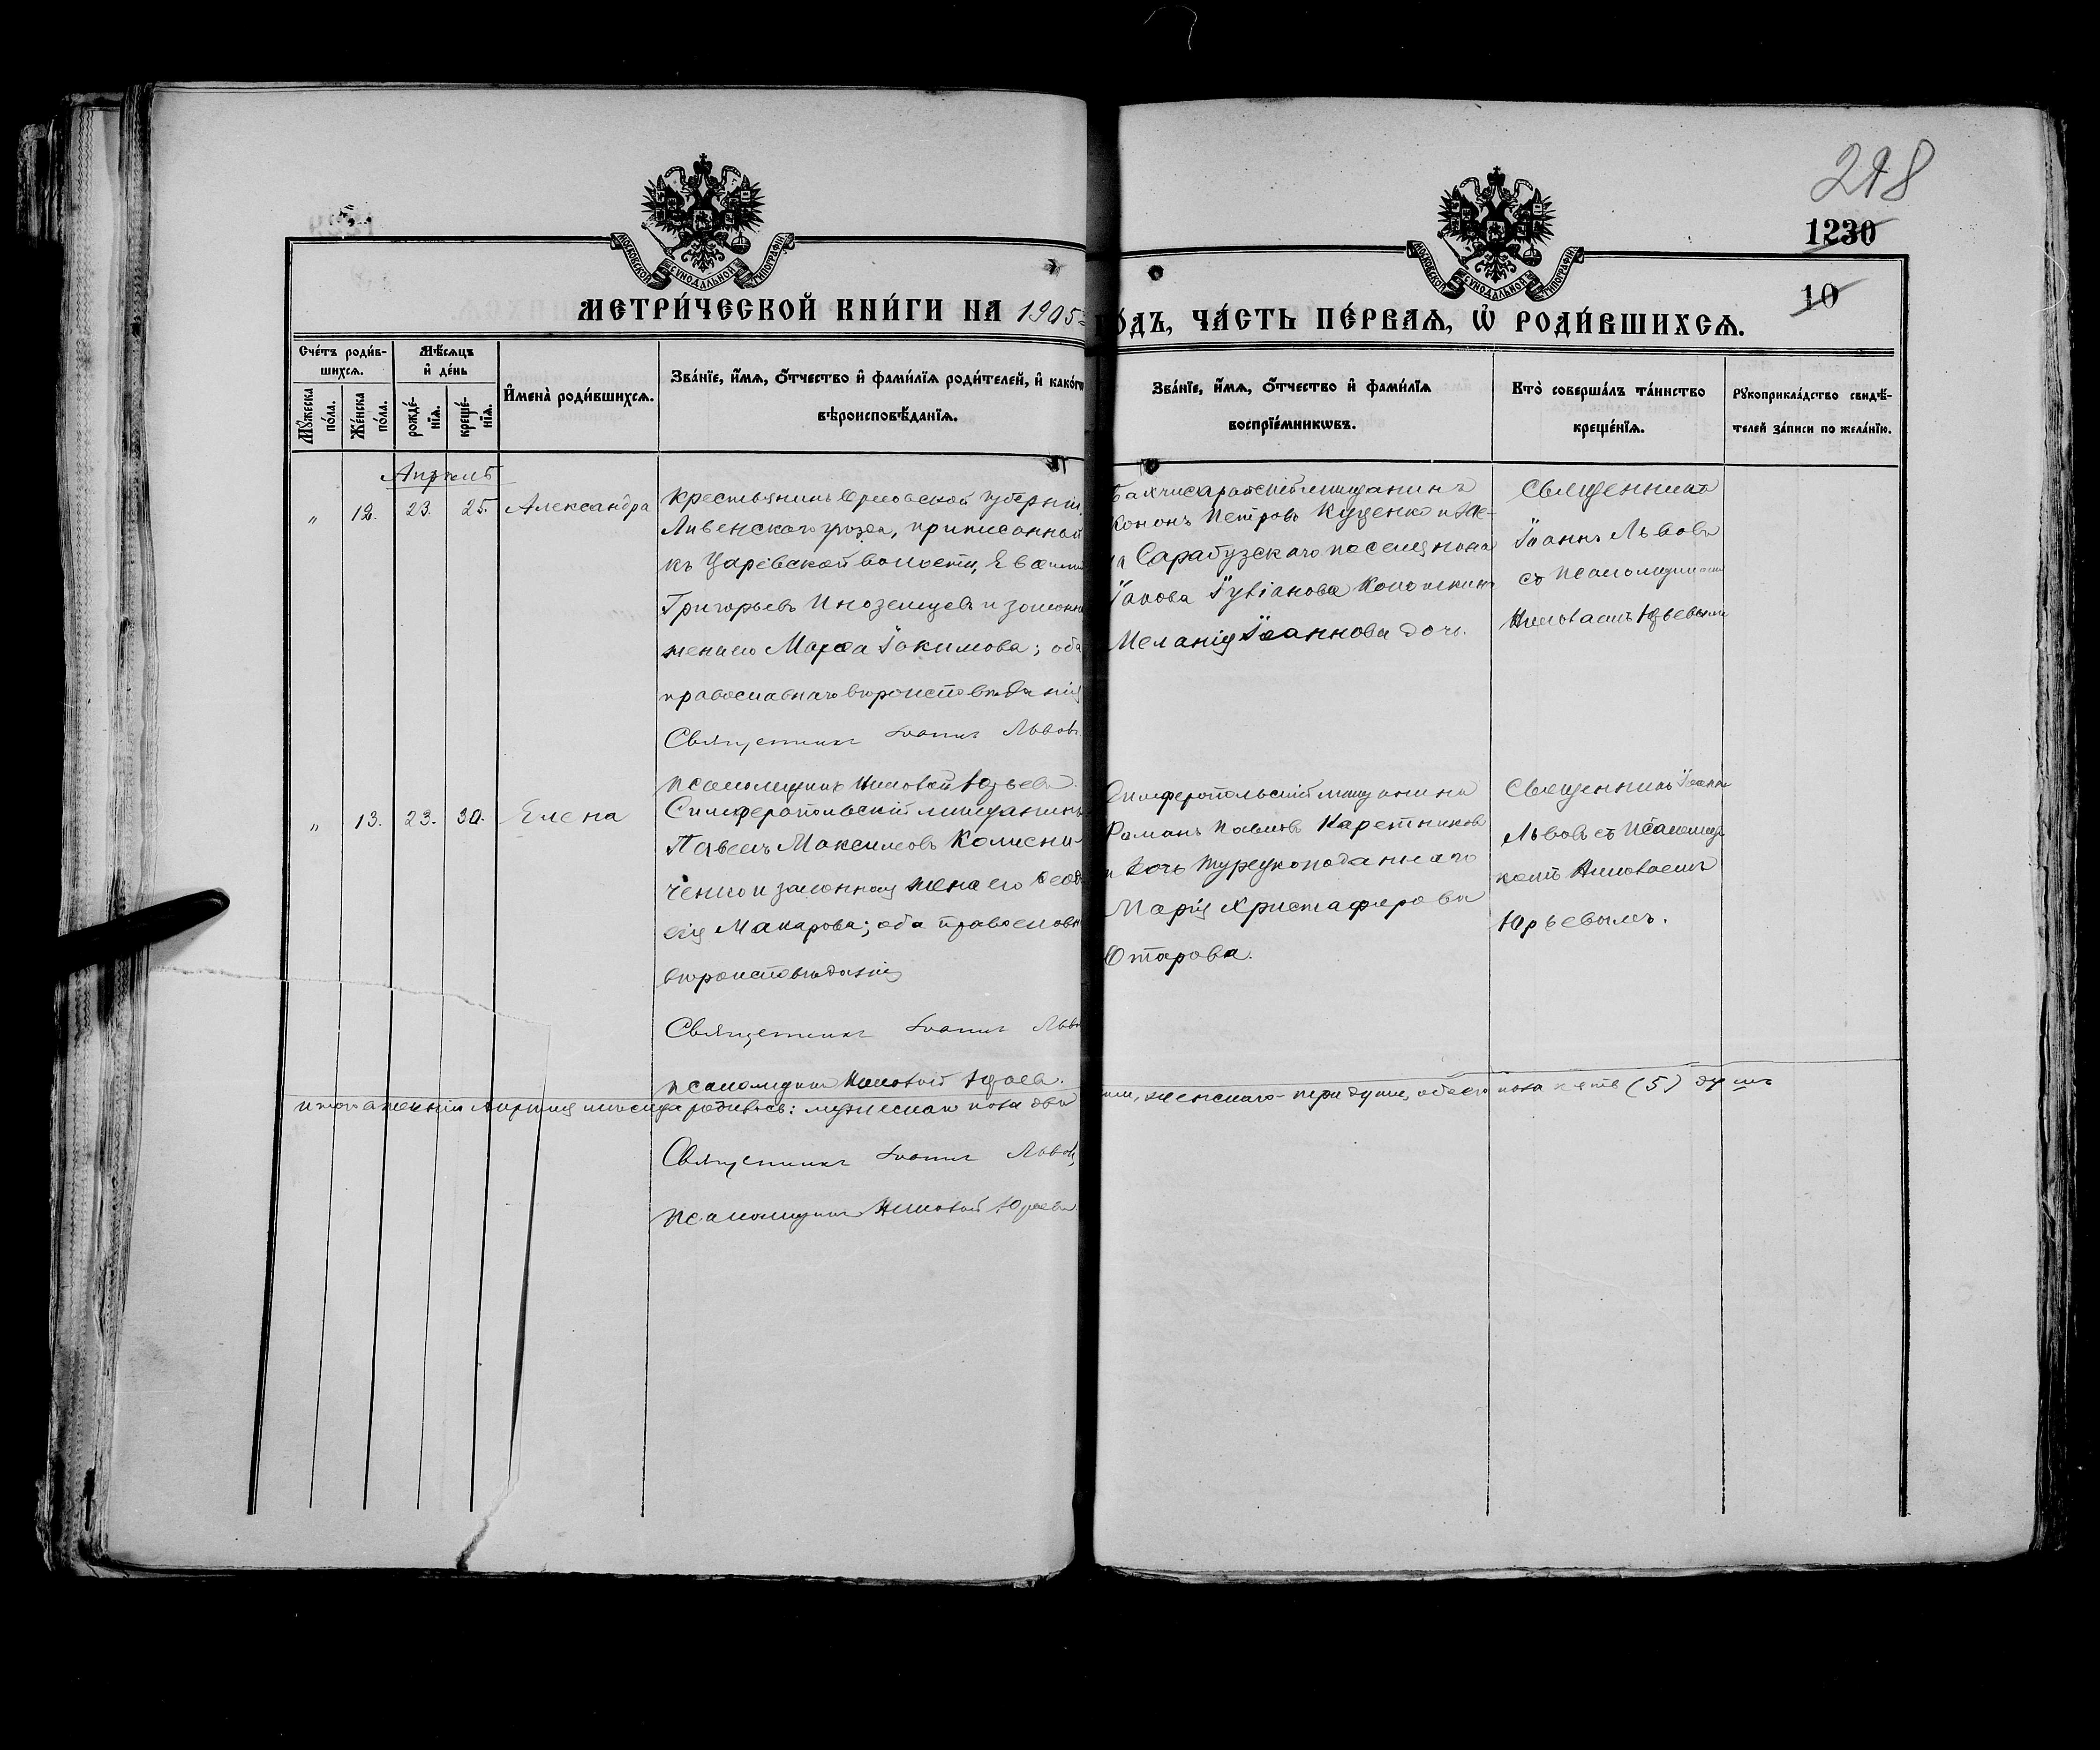 218
1230
10
МОСКОВСКОЙ СУНОДАЛЬНОЙ ТИПОГРАФІИ
МОСКОВСКОЙ СУНОДАЛЬНОЙ ТИПОГРАФІИ
МЕТРИ́ЧЕСКОЙ КНИ́ГИ НА 1905
ГО́ДЪ, ЧА́СТЬ ПЕ́РВАѦ, Ѡ҆ РОДИ́ВШИХСѦ.
Сче́тъ роди́в-
шихсѧ.
Мѣ́сѧцъ
и҆ де́нь
Мꙋ́жеска
по́ла.
Же́нска
по́ла.
рожде́-
нїѧ.
креще́-
нїѧ.
И҆мена̀ роди́вшихсѧ.
Зва́нїе, и҆́мѧ, ѻ҆́тчество и҆ фами́лїѧ роди́телей, и҆ како́гѡ
вѣроисповѣ́данїѧ.
Зва́нїе, и҆́мѧ, ѻ҆́тчество и҆ фами́лїѧ
воспрїе́мникѡвъ.
Кто̀ соверша́лъ та́инство
креще́нїѧ.
Рꙋкоприкла́дство свидѣ́-
телей за́писи по жела́нїю.
Апрѣль
" 12. 23. 25. Александра
Крестьянинъ Орловской губерніи
Ливенскаго уѣзда, приписанной
къ Царевской волости,
Григорьевъ Иноземцевъ и законная
жена его Марѳа Іакимова; оба
православнаго вѣроисповѣданія
Священникъ Іоаннъ Львовъ
псаломщикъ Николай Юрьевъ
Бахчисарайскій мѣщанинъ
Кононъ Петровъ Куценко и
Сарабузскаго поселянина
Іакова
Меланія Іоаннова дочь.
Священникъ
Іоаннъ Львовъ
съ псаломщикомъ
Николаемъ Юрьевымъ
" 13. 23. 30. Елена
Симферопольскій мѣщанинъ
Павелъ Максимовъ Колесни-
ченко и законная жена его Ѳеодо
сія Макарова; оба православн
вѣроисповѣданія
Священникъ Іоаннъ Львовъ
псаломщикъ Николай Юрьевъ.
Симферопольскій мѣщанинъ
Романъ Павловъ Каретниковъ
и дочь турецкоподаннаго
Марія Христафорова
Отарова.
Священникъ Іоаннъ
Львовъ съ псаломщи
комъ Николаемъ
Юрьевымъ.
Итого въ теченіи Апрѣля мѣсяца родилось: мужескаго пола два
женскаго - три души, обоего пола пять (5) душъ
Священникъ Іоаннъ Львовъ
псаломщикъ Николай Юрьевъ